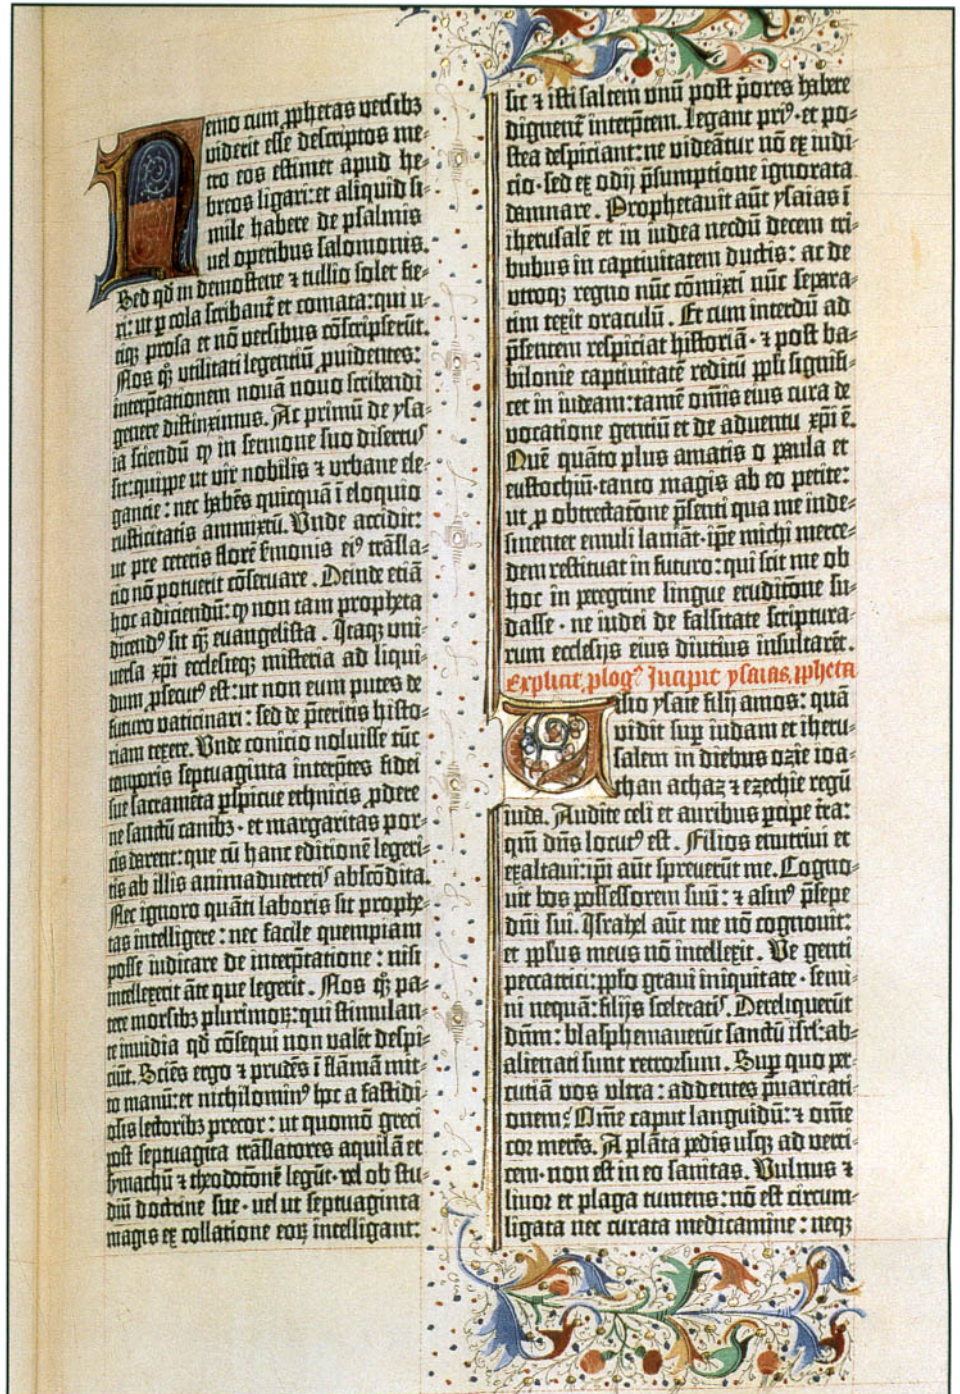 Nemo cum ꝓphetas versibꝫ
viderit esse descriptos me-
tro eos estimet apud he-
breos ligari: et aliquid si-
mile habere de psalmis
vel operibus salomonis.
Sed qđ in demostene ⁊ tullio solet fie-
ri: ut ꝑ cola scribant̃ et comata: qui u-
tiqꝫ prosa et nō versibus cōscripserūt.
Nos qꝫ̃ utilitati legentiū ꝓuidentes:
interp̄tationem nouā nouo scribendi
genere distinximus. Ac primū de ysa-
ia sciendū ꝙ in sermone suo disertꝰ
sit: quippe ut vir nobilis ⁊ vrbane ele-
gantie: nec habēs quicquā ī eloquio
rusticitatis ammixtū. Vnde accidit:
ut pre ceteris florē s̄monis eiꝰ trāsla-
tio nō potuerit cōseruare. Deinde etiā
hoc adiciendū: ꝙ non tam propheta
dicendꝰ sit qꝫ̃ euangelista. Itaqꝫ uni-
uersa xp̄i ecclesieqꝫ misteria ad liqui-
dum ꝓsecutꝰ est: ut non eum putes de
futuro vaticinari: sed de p̄teritis histo-
riam texere. Vnde conicio noluisse tūc
temporis septuaginta interp̄tes fidei
sue sacramēta ꝑspicue ethnicis ꝓdere
ne sanctū canibꝫ· et margaritas por-
cis darent: que cū hanc editionē legeri-
tis ab illis animaduertetis abscōdita.
Nec ignoro quāti laboris sit prophe-
tas intelligere: nec facile quempiam
posse iudicare de interp̄tatione: nisi
intellexerit āte que legerit. Nos qꝫ̃ pa-
tere morsibꝫ plurimoꝝ: qui stimulan-
te inuidia qđ cōsequi non valēt despi-
ciūt. Sciēs ergo ⁊ prudēs ī flāmā mit-
to manū: et nichilominꝰ hoc a fastidi-
osis lectoribꝫ precor: ut quomō greci
post septuagīta trāslatores aquilā et
symachū ⁊ theodotonē legūt· vel ob stu-
diū doctrine sue· uel ut septuaginta
magis ex collatione eoꝝ intelligant:
sic ⁊ isti saltem vnū post p̄ores habere
dignent̃ interp̄tem. Legant priꝰ· et po-
stea despiciant: ne videātur nō ex iudi-
cio· sed ex odij p̄sumptione ignorata
damnare. Prophetauit aūt ysaias ī
iherusalē et in iudea necdū decem tri-
bubus in captiuitatem ductis: ac de
vtroqꝫ regno nūc cōmixti nūc separa-
tim texit oraculū. Et cum interdū ad
p̄sentem respiciat historiā· ⁊ post ba-
bilonie captiuitatē reditū ppl̄i signifi-
cet in iudeam: tamē om̄is eius cura de
vocatione genciū et de aduentu xp̄i ē.
Quē quāto plus amatis o paula et
eustochiū· tanto magis ab eo petite:
ut ꝓ obtrectatōne p̄senti qua me inde-
sinenter emuli laniāt· ip̄e michi merce-
dem restituat in futuro: qui scit me ob
hoc in peregrine lingue eruditōne su-
dasse· ne iudei de falsitate scriptura-
rum ecclesijs eius diutius insultarēt.
Explicit ꝓlogꝰ Incipit ysaias ꝓpheta
Visio ysaie filij amos: quā
vidit suꝑ iudam et iheru-
salem in diebus ozie ioa-
than achaz ⁊ ezechie regū
iuda. Audite celi et auribus ꝑcipe t̄ra:
qm̄ dn̄s locutꝰ est. Filios enutriui et
exaltaui: ip̄i aūt spreuerūt me. Cogno-
uit bos possessorem suū: ⁊ asinꝰ p̄sepe
dn̄i sui. Israhel aūt me nō cognouit:
et ppl̄us meus nō intellexit. Ve genti
peccatrici: ppl̄o graui iniquitate· semi-
ni nequā: filijs sceleratis. Dereliquerūt
dn̄m: blasphemauerūt sanctū isrl̄: ab-
alienati sunt retrorsum. Suꝑ quo per-
cutiā vos vltra: addentes p̄uaricati-
onem? Om̄e caput languidū: ⁊ om̄e
cor merēs. A plāta pedis usqꝫ ad verti-
cem· non est in eo sanitas. Vulnus ⁊
liuor et plaga tumens: nō est circum-
ligata nec curata medicamine: neqꝫ